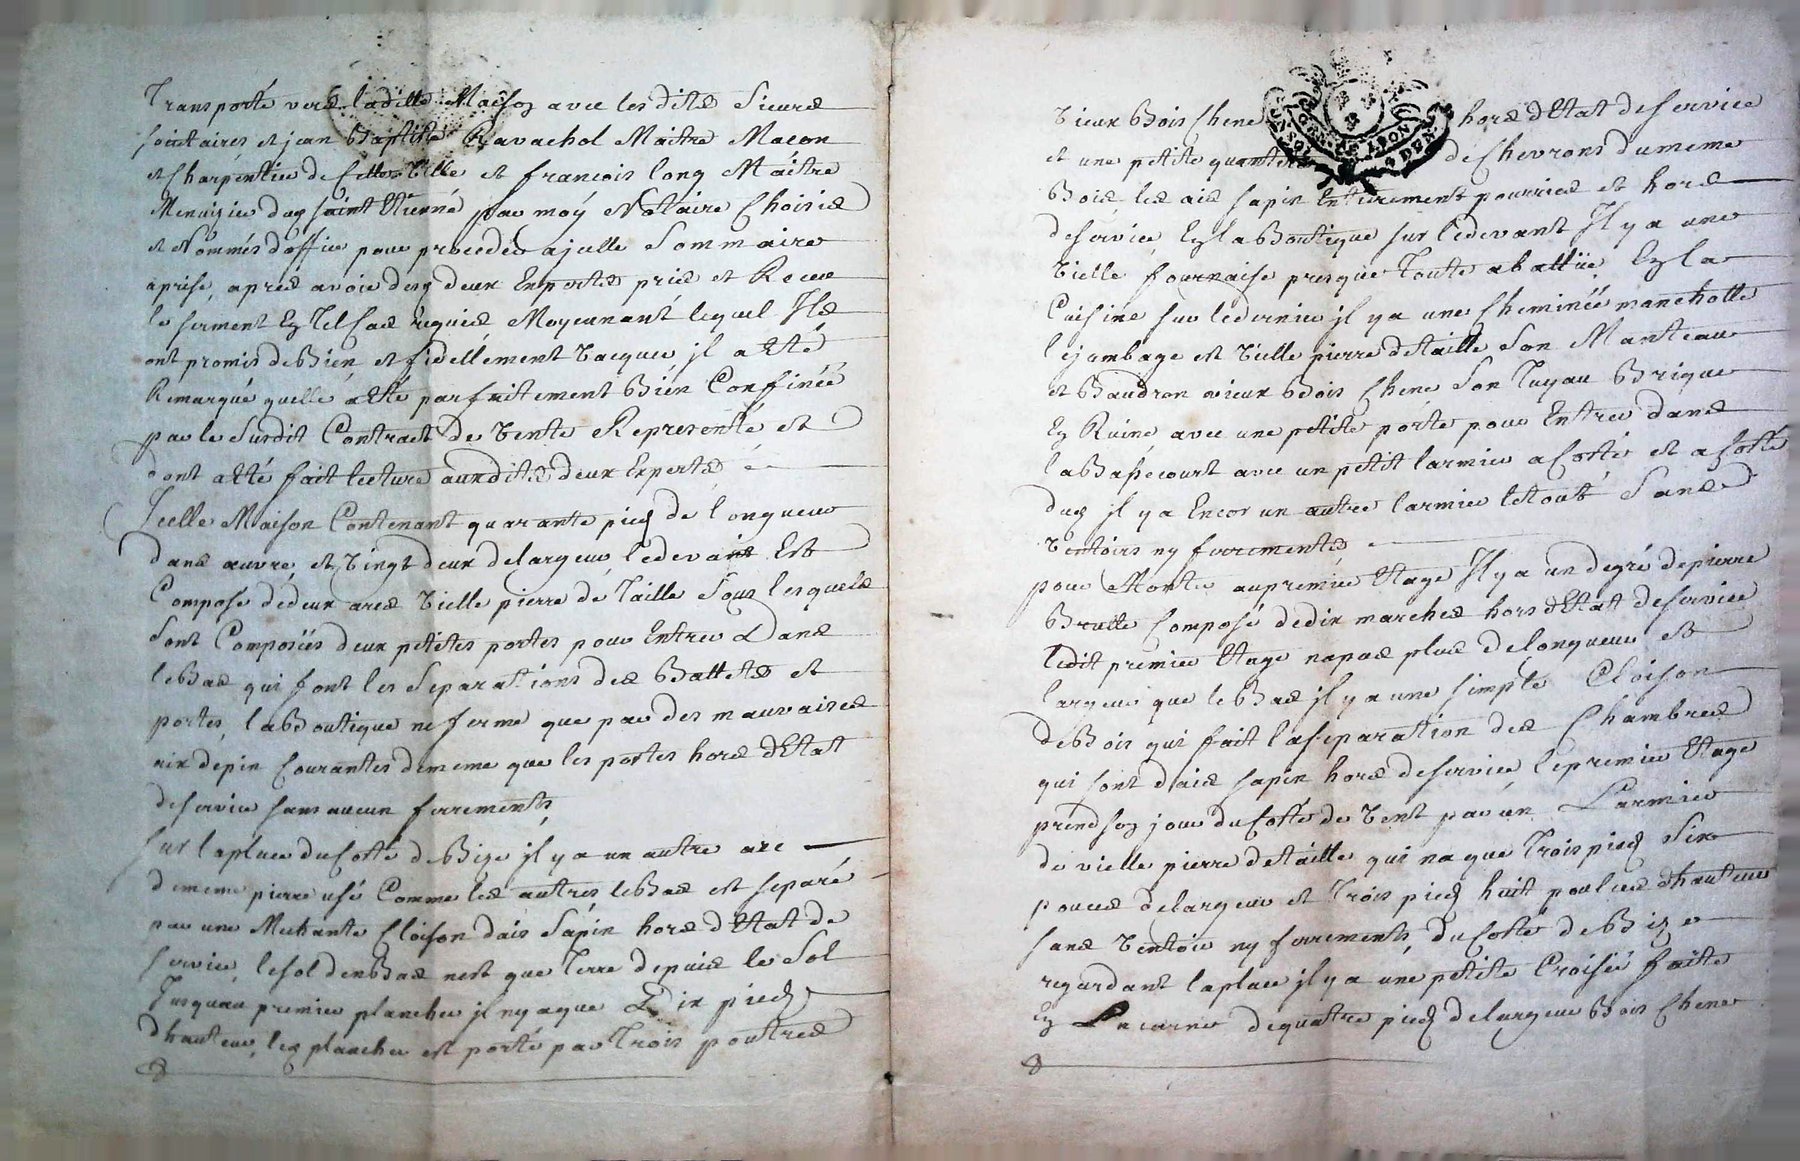 Transporté vers laditte Maison avec les dits Sieurs
et jean Baptiste Ravachol Maitre Macon
et Charpentier de Cette Ville et francois long Maitre
Menuizier dud saint Etienné par moy Notaire Choisis
et Nommés doffice pour proceder a jcelle Sommaire
aprise, aprés avoir desd deux Experts pris et Receu
le serment En Tel Cas requis Moyennant lequel Ils
ont promis de Bien et fidellement Vacquer jl a Eté
Remarqué quelle a Eté parfaitement Bien Confinée
par le Susdit Contract de Vente Representé et
dont a Eté fait lecture auxdits deux Experts
Icelle Maison Contenant quarante pieds de longueur
dans œuvre, et Vingt deux de largeur, le devant Est
Composé de deux arcs Vielle pierre de Taille Sous lesquels
Sont Composées deux petites portes pour Entrer Dans
le Bas qui font les Separations des Battets et
portes, la Boutique ne ferme que par des mauvaises
aix de pin Courantes de meme que les portes hors dEtat
de service sans aucun ferrements,
Sur la place du Cotté de Bize jl y a un autre arc
de meme pierre usé Comme les autres le Bas est separé
par une Mechante Cloison dais Sapin hors dEtat de
service, le sol den Bas nest que Terre depuis le Sol
Jusquau premier plancher jl ny a que Dix pieds
dhauteur, led plancher est porté par Trois poutres
Vieux Bois Chene hors dEtat de service
et une petite quantité de Chevrons du meme
Bois les ais sapin Entierement pourries et hors
de service En la Boutique sur le devant Il y a une
Vielle fournaise presque Toute abattüe En la
Cuisine sur le dernier jl y a une Cheminée manchotte
le jambage est Vielle pierre de taille Son Manteau
et Baudron vieux Bois Chene Son Tuyau Brique
En Ruine avec une petite porte pour Entrer dans
la Bassecourt avec un petit larmier a Cotté et a Cotté
dud jl y a Encor un autre larmier le tout Sans
Ventoirs ny ferrements
pour Monter au premier Etage Il y a un degré de pierre
Brutte Composé de dix marches hors dEtat de service
ledit premier Etage na pas plus de longueur et
largeur que le Bas jl y a une simple Cloison
de Bois qui fait la separation des Chambres
qui sont dais sapin hors de service le premier Etage
prend son jour du Cotté de Vent par un Larmier
de vielle pierre de taille qui na que Trois pieds Six
pouces de largeur et Trois pieds huit poulces dhauteur
sans Ventoir ny ferrements, du Cotté de Bize
regardant la place jl y a une petite Croisée faite
En Lucarne de quatre pieds de largeur Bois Chene